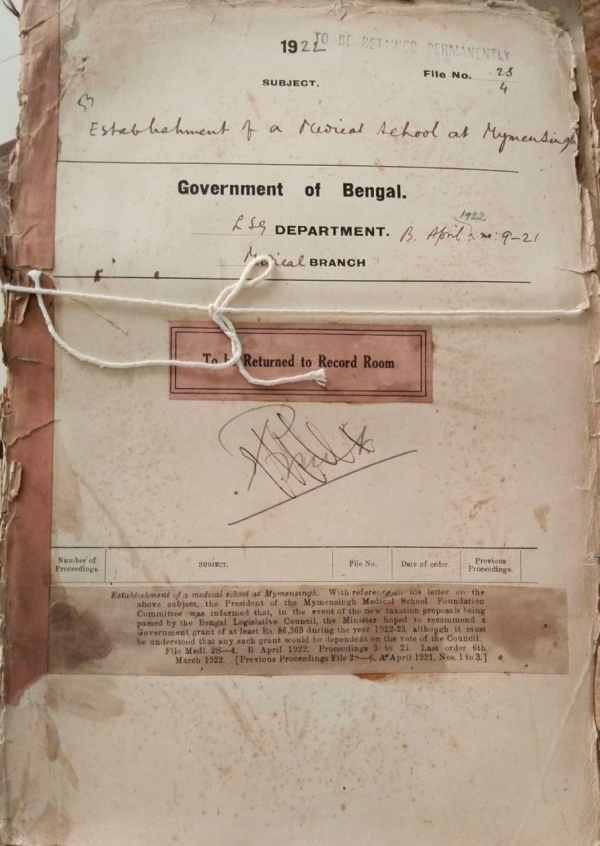 1922 TO BE RETAINED PERMANENTLY
File No. 2S
4
SUBJECT.
Establishment of a Medical School at Mymensingh
Government of Bengal.
LSG DEPARTMENT. B. April 1922 no: 9-21
Medical BRANCH
To be Returned to Record Room
Number of Proceedings. SUBJECT. File No. Date of order. Previous Proceedings.
Establishment of a medical school at Mymensingh. With reference to his letter on the
above subject, the President of the Mymensingh Medical School Foundation
Committee was informed that, in the event of the new taxation proposals being
passed by the Bengal Legislative Council, the Minister hoped to recommend a
Government grant of at least Rs. 86,369 during the year 1922-23, although it must
be understood that any such grant would be dependent on the vote of the Council.
File Medl. 2S—4, B April 1922, Proceedings 9 to 21. Last order 6th
March 1922. [Previous Proceedings File 2S—6, A April 1921, Nos. 1 to 3.]